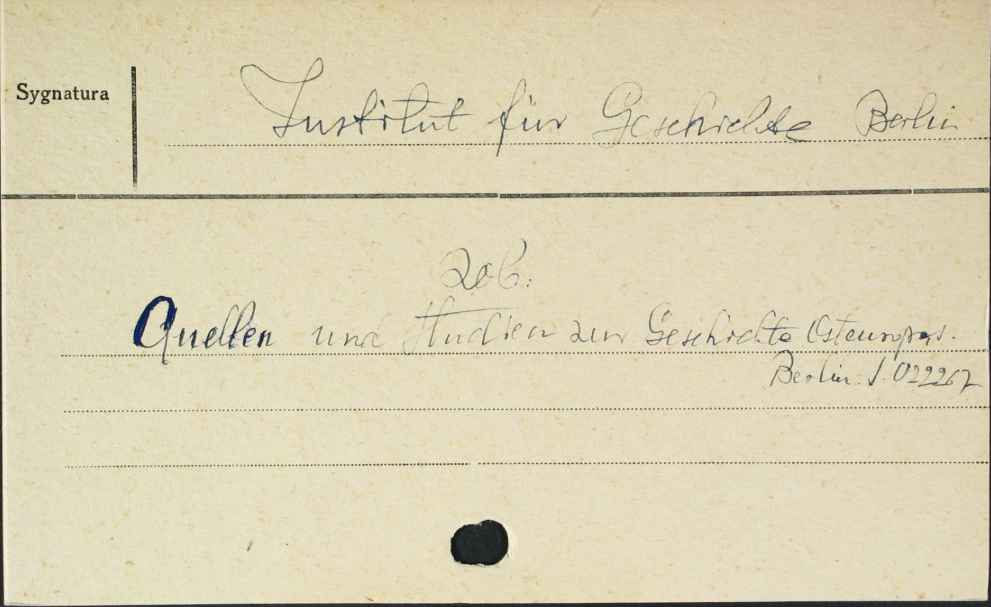 Sygnatura
Institut für Geschichte Berlin
Zob:
Quellen und Studien zur Geschichte Osteuropas.
Berlin. J. 022267